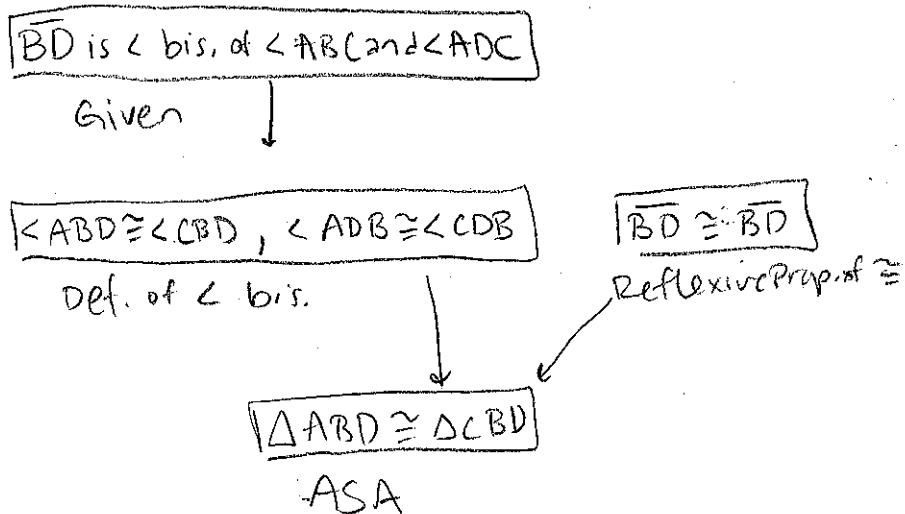 BD is < bis. of < ABC and < ADC
Given
< ABD ≅ < CBD, < ADB ≅ < CDB
BD ≅ BD
Def. of < bis.
Reflexive Prop. of ≅
△ABD ≅ △CBD
ASA